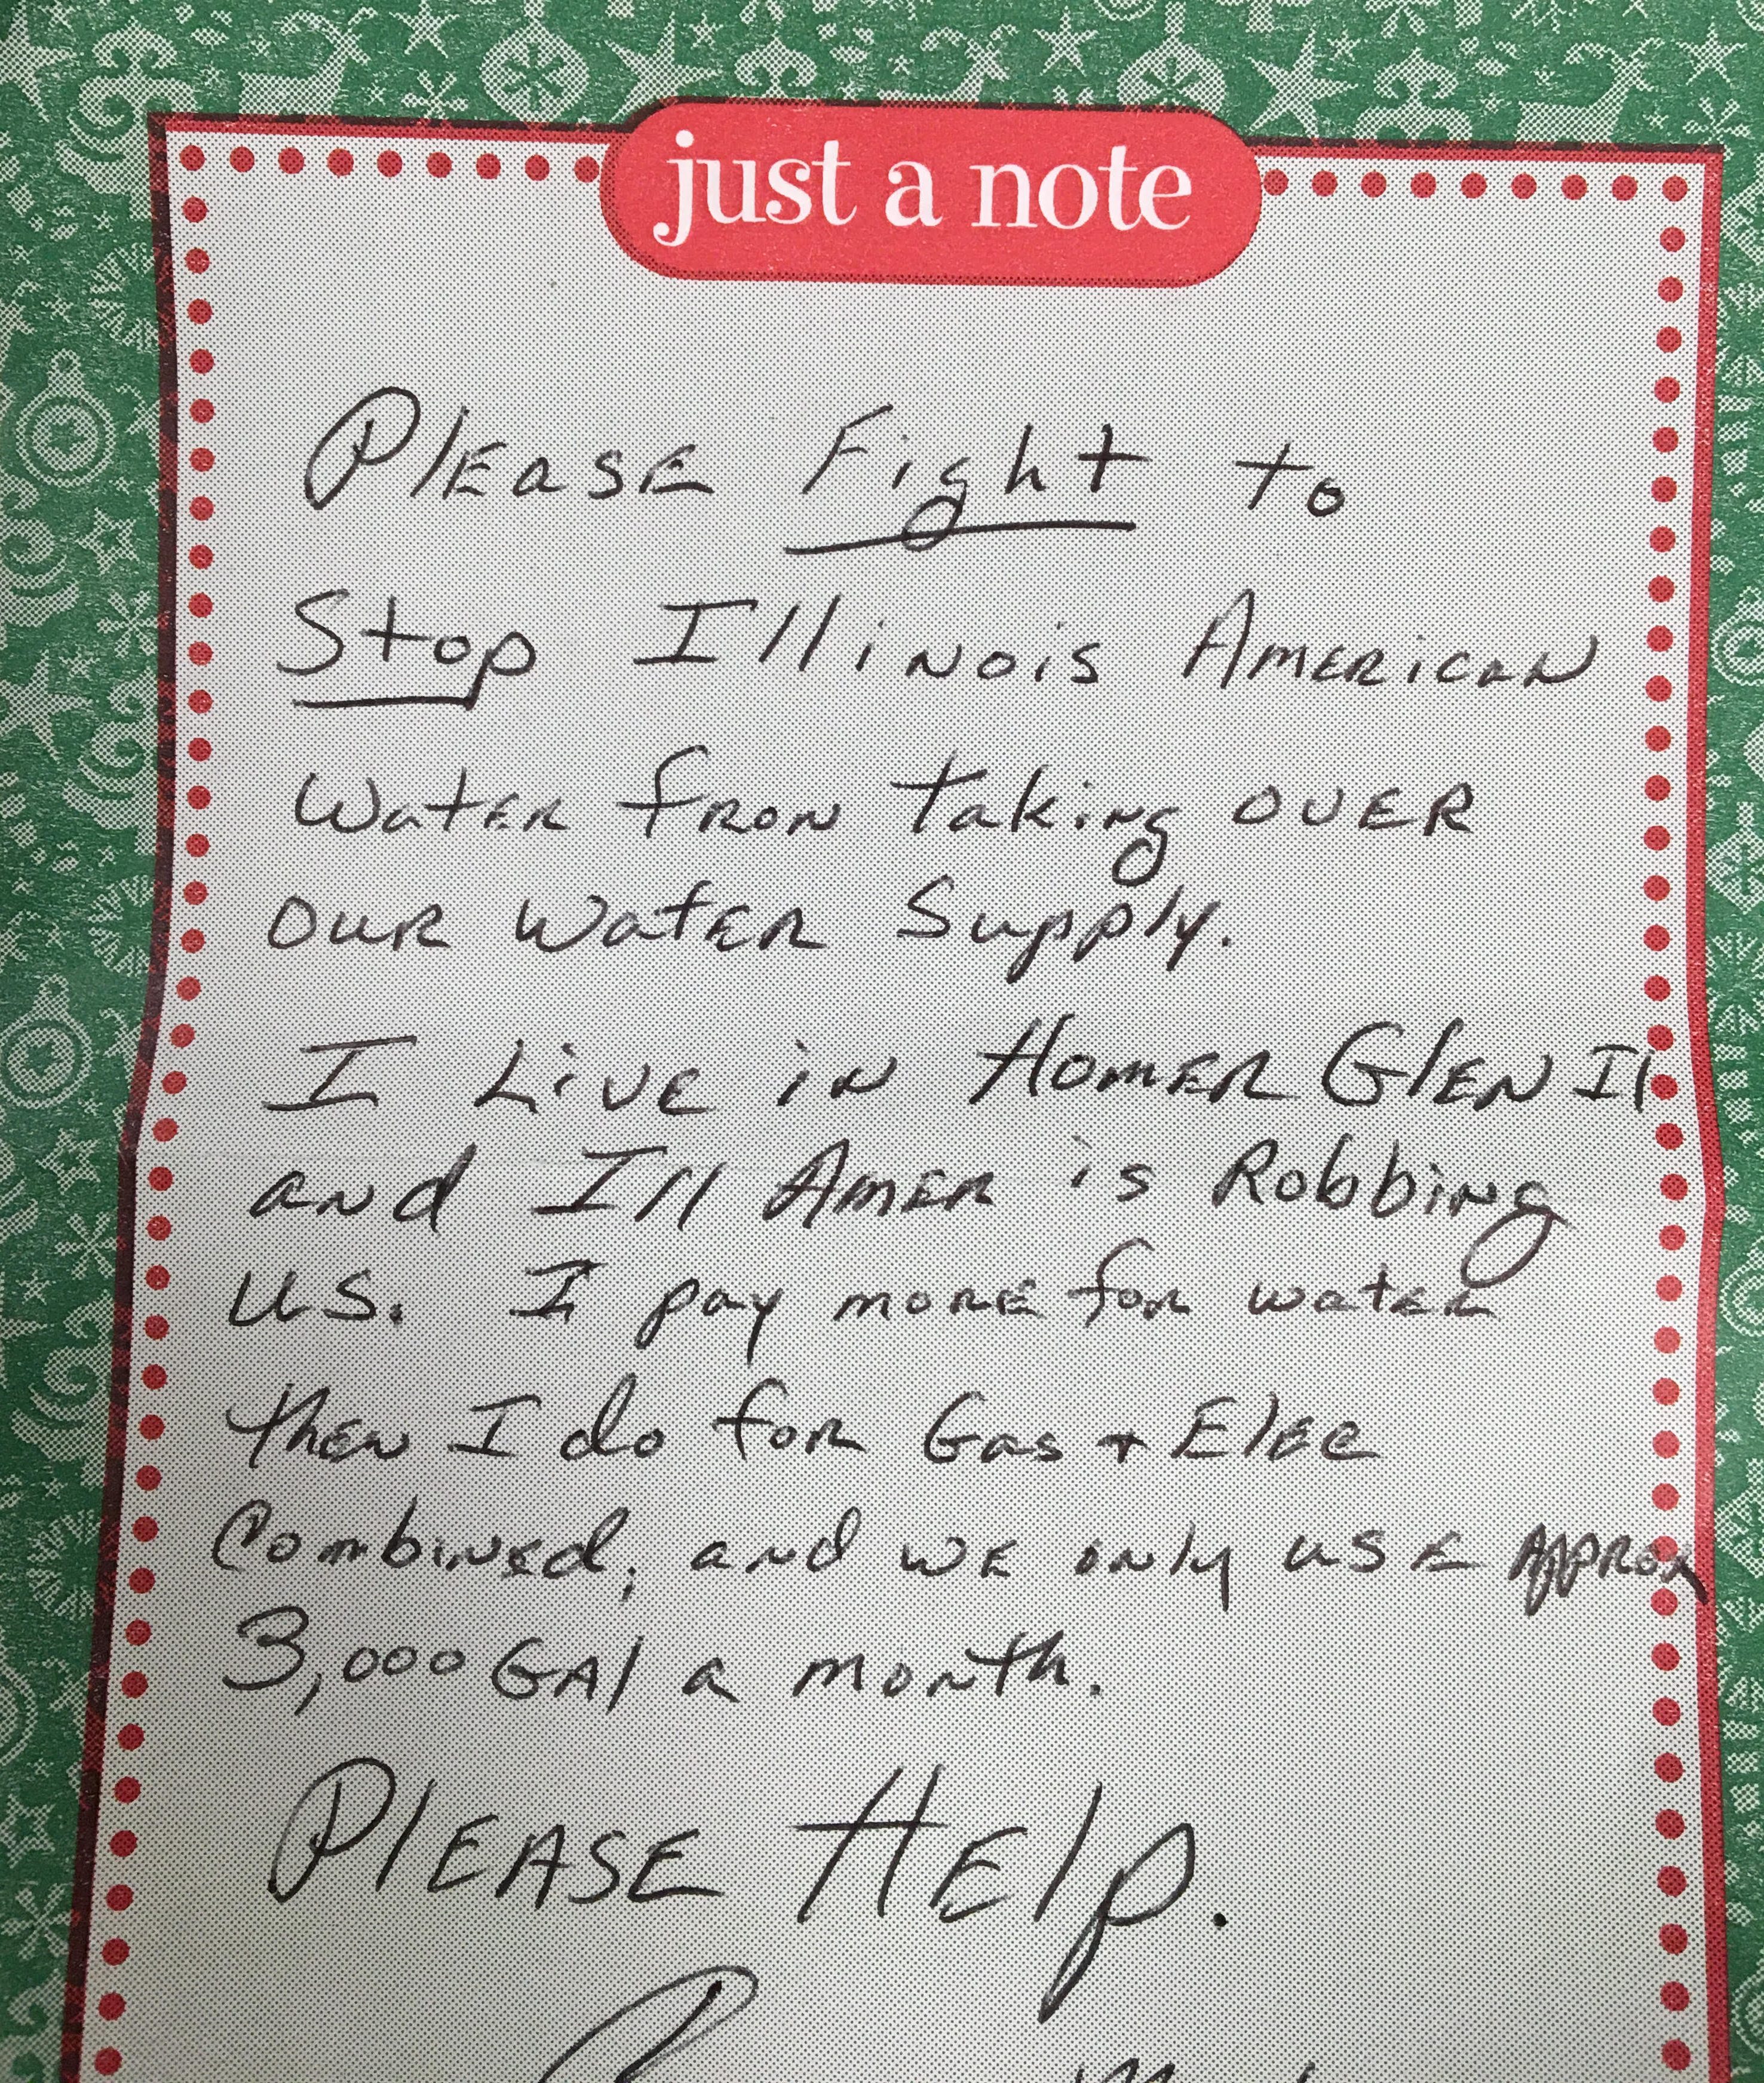 just a note
Please Fight to
Stop Illinois American
Water fron taking over
our water supply.
I Live in Homer Glen Il
and Ill Amer is Robbing
us. I pay more for water
then I do for Gas + Elec
Combined, and we only use Approx
3,000 GAl a month.
Please Help.